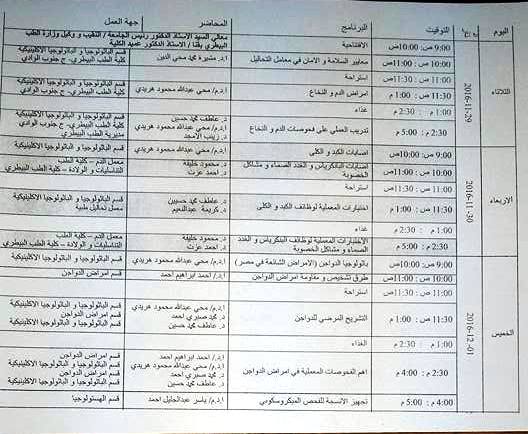 اليوم التوقيت البرنامج المحاضر جهة العمل
الثلاثاء 2016-11-29
9:00 ص: 10:00ص الافتتاحية معالي السيد الاستاذ الدكتور رئيس الجامعة / النقيب و وكيل وزارة الطب
البيطري بقنا / الاستاذ الدكتور عميد الكلية
10:00 ص : 11:00 ص معايير السلامة و الامان في معامل التحاليل ا.د. مشيرة محمد محي الدين قسم الباثولوجيا و الباثولوجيا الاكلينيكية
كلية الطب البيطري- ج جنوب الوادي
11:00 ص : 11:30 ص استراحة
11:30 ص : 1:00 م امراض الدم و النخاع ا.د/م/ محي عبدالله محمود هريدي قسم الباثولوجيا و الباثولوجيا الاكلينيكية
كلية الطب البيطري- ج جنوب الوادي
1:00 م : 2:30 م غذاء
2:30 م : 5:00 م تدريب العملي على فحوصات الدم و النخاع د. عاطف محمد حسين قسم الباثولوجيا و الباثولوجيا الاكلينيكية
ا.د/م/ محي عبدالله محمود هريدي كلية الطب البيطري- ج جنوب الوادي
د. زينب الامجد مديرية الطب البيطري
الاربعاء 2016-11-30
9:00 ص: 10:00ص اصابات الكبد و الكلى ا.د/م/ محي عبدالله محمود هريدي قسم الباثولوجيا و الباثولوجيا الاكلينيكية
10:00 ص : 11:00 ص اصابات البانكرياس و الغدد الصماء و مشاكل د. محمود خليفة معمل الدم – كلية الطب
الخصوبة د. احمد عزت التناسليات و الولادة – كلية الطب البيطري
11:00 ص : 11:30 ص استراحة
11:30 ص : 1:00 م اختبارات المعملية لوظائف الكبد و الكلى د. عاطف محمد حسين قسم الباثولوجيا و الباثولوجيا الاكلينيكية
د. كريمة عبدالنعيم معمل تحاليل طبية
1:00 م : 2:30 م غذاء
2:30 م : 5:00 م الاختبارات المعملية لوظائف البنكرياس و الغدد د. محمود خليفة معمل الدم – كلية الطب
الصماء و مشاكل الخصوبة د. احمد عزت التناسليات و الولادة – كلية الطب البيطري
الخميس 2016-12-01
9:00 ص: 10:00ص باثولوجيا الدواجن (الامراض الشائعة في مصر) ا.د/م/ محي عبدالله محمود هريدي قسم الباثولوجيا و الباثولوجيا الاكلينيكية
10:00 ص : 11:00 ص طرق تشخيص و مقاومة امراض الدواجن ا.د/ احمد ابراهيم احمد قسم امراض الدواجن
11:00 ص : 11:30 ص استراحة
11:30 ص : 1:00 م التشريح المرضي للدواجن ا.د/م/ محي عبدالله محمود هريدي قسم الباثولوجيا و الباثولوجيا الاكلينيكية
د. محمد صبري احمد قسم امراض الدواجن
د. عاطف محمد حسين قسم الباثولوجيا و الباثولوجيا الاكلينيكية
1:00 م : 2:30 م الغذاء
2:30 م : 4:00 م اهم الفحوصات المعملية في امراض الدواجن ا.د/ احمد ابراهيم احمد قسم امراض الدواجن
ا.د/م/ محي عبدالله محمود هريدي قسم الباثولوجيا و الباثولوجيا الاكلينيكية
د. محمد صبري احمد قسم امراض الدواجن
د. عاطف محمد حسين قسم الباثولوجيا و الباثولوجيا الاكلينيكية
4:00 م : 5:00 م تجهيز الانسجة للفحص الميكروسكوبي ا.د/م/ ياسر عبدالجليل احمد قسم الهستولوجيا